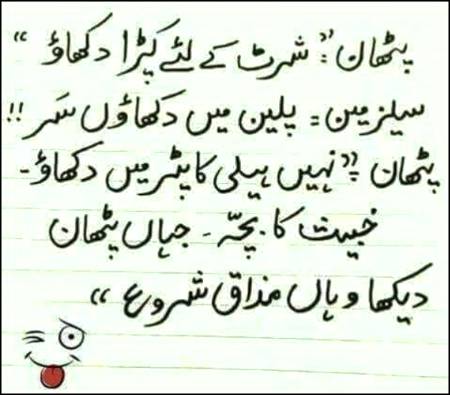 پٹھان :" شرٹ کے لئے کپڑا دکھاؤ "
سیلزمین = پلین میں دکھاؤں سَر !!
پٹھان :" نہیں ہیلی کاپٹر میں دکھاؤ۔
خبیث کا بچّہ ۔ جہاں پٹھان
دیکھا وہاں مذاق شروع "